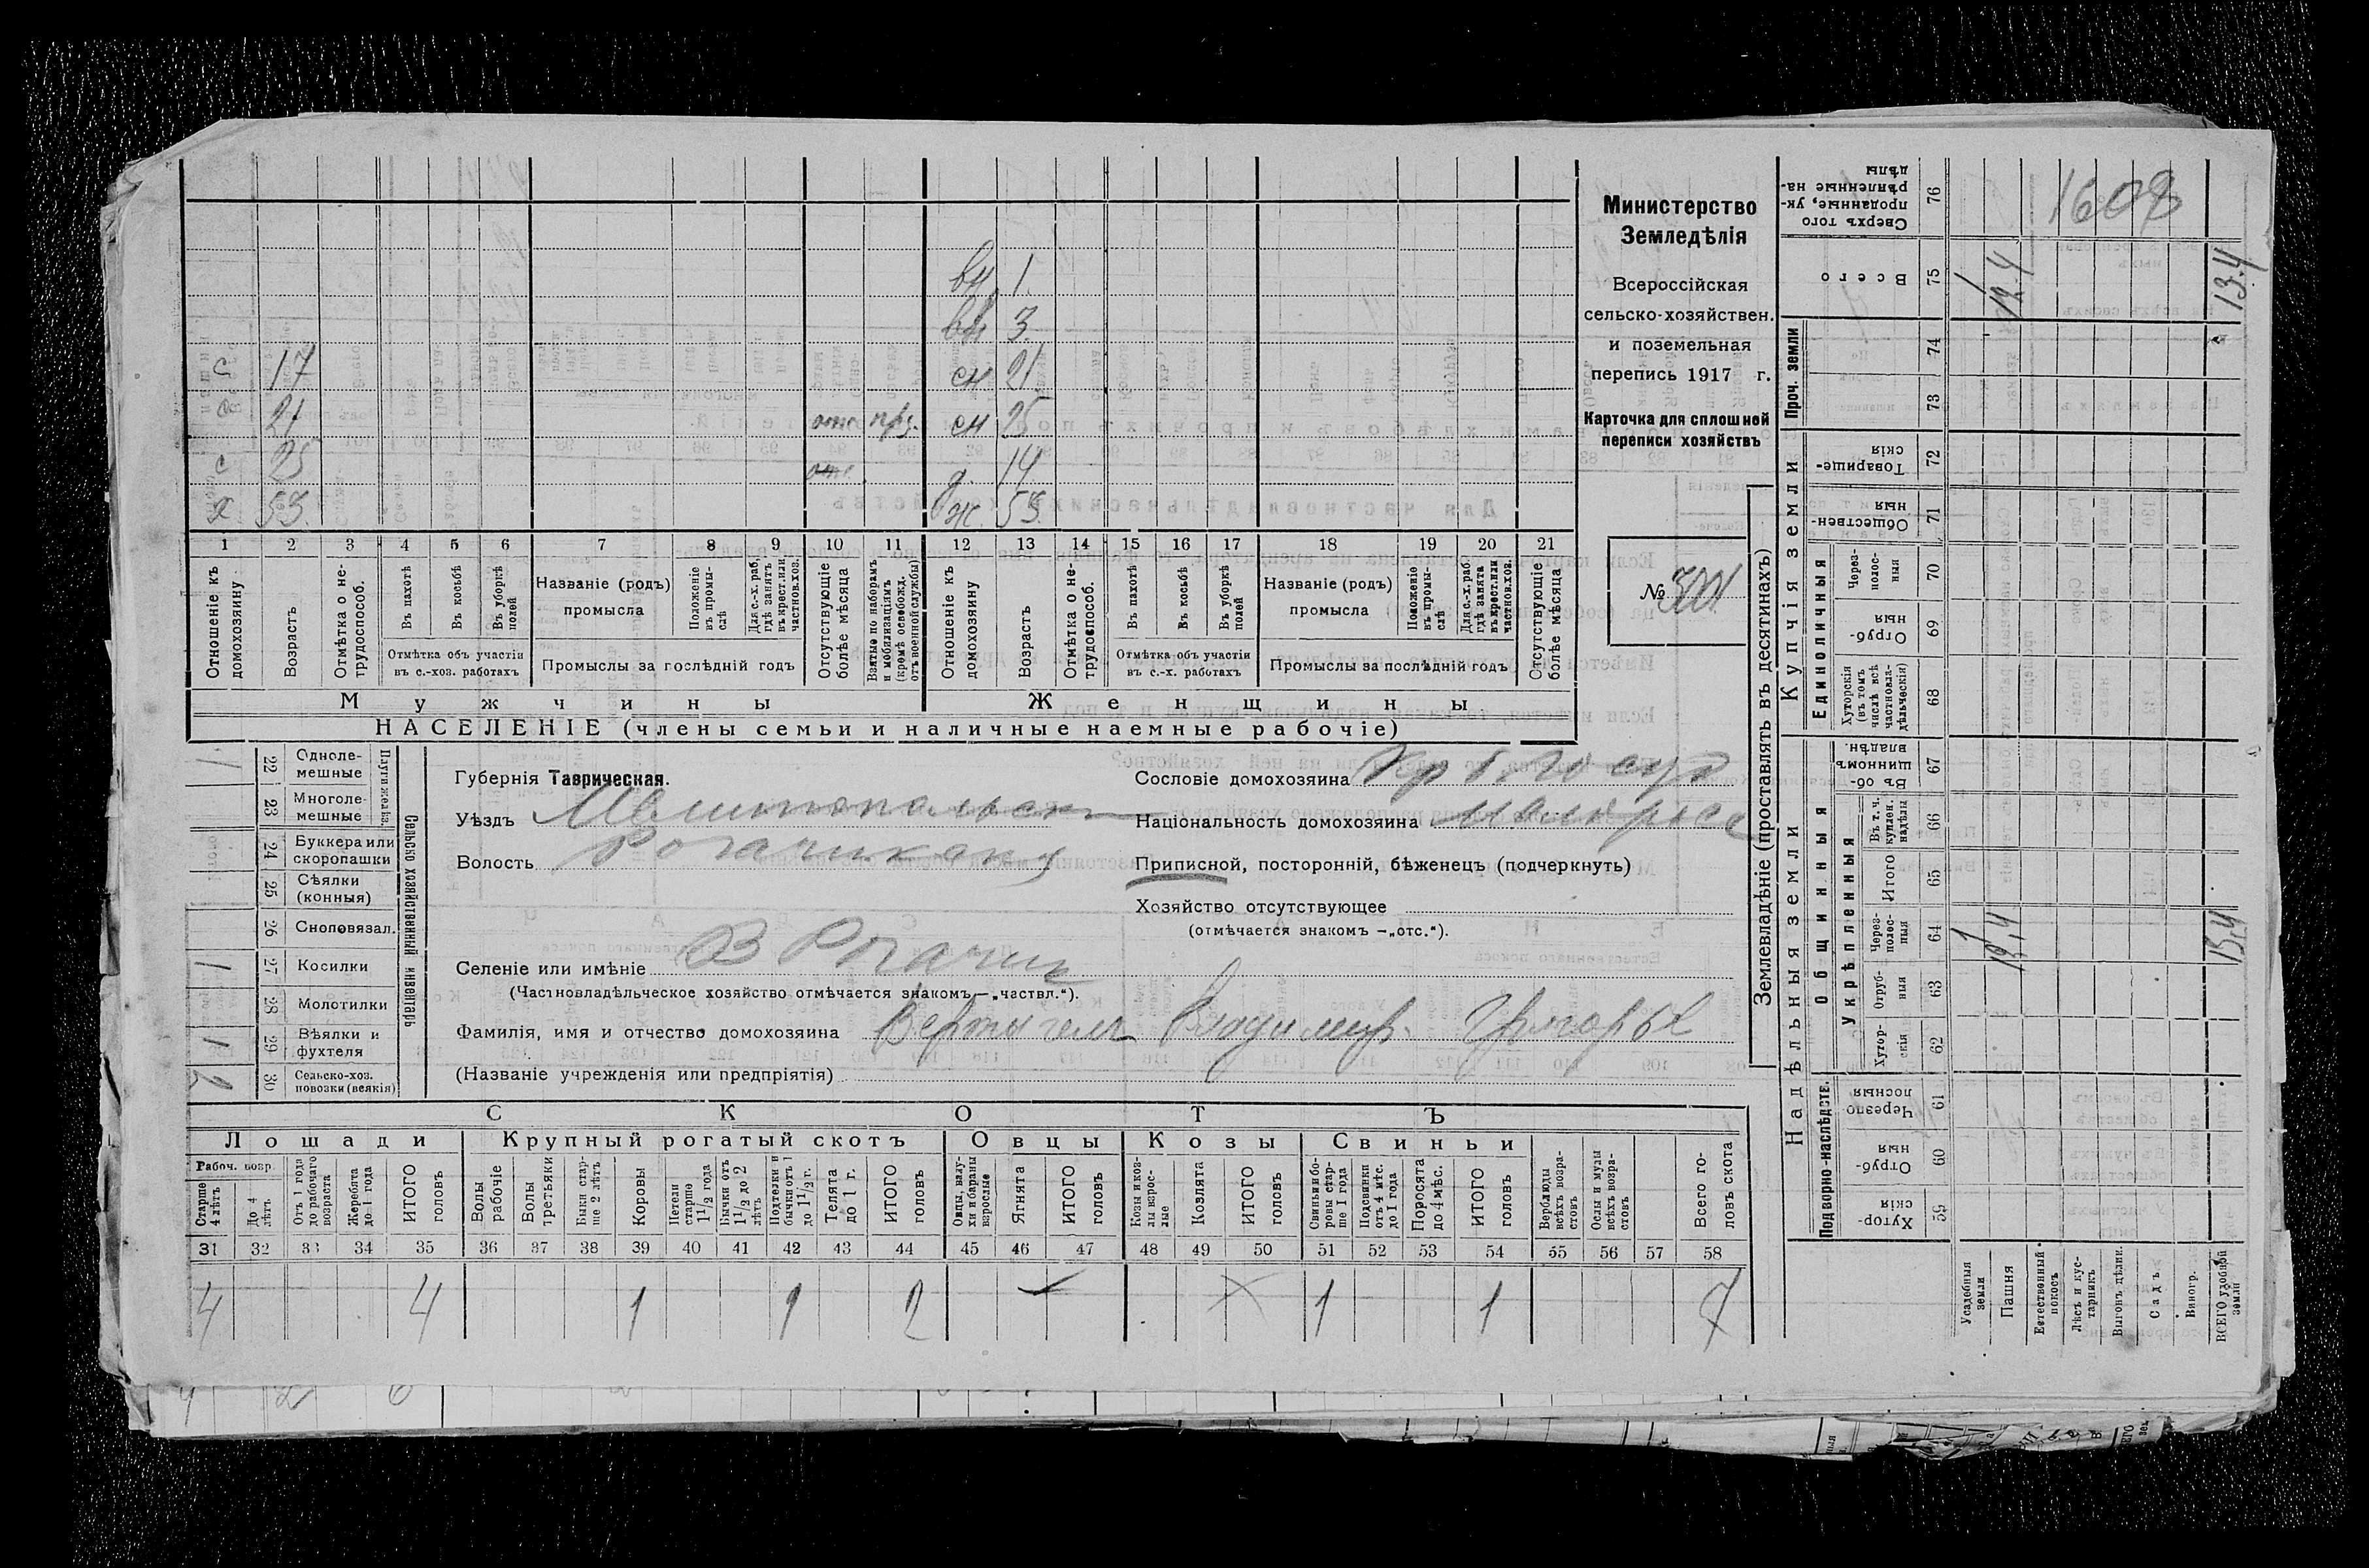 Министерство
Земледѣлія
Всероссійская
сельско-хозяйствен.
и поземельная
перепись 1917 г.
Карточка для сплошной
переписи хозяйствъ
№
1608
вн 1
вн 3
с 17 сн 21
с 21 отс пр. сн 25
с 25 отс д. 14
х 53 ж. 53
1 2 3 4 5 6 7 8 9 10 11 12 13 14 15 16 17 18 19 20 21
Отношеніе къ домохозяину
Возрастъ
Отмѣтка о не-трудоспособ.
Въ пахотѣ
Въ косьбѣ
Въ уборкѣ полей
Отмѣтка объ участіи въ с.-хоз. работахъ
Названіе (родъ) промысла
Положеніе въ промы-слѣ
Для с.-х. раб. гдѣ занятъ въ крест. или частнов. хоз.
Промыслы за послѣдній годъ
Отсутствующіе болѣе мѣсяца
Взятые по наборамъ и мобилизаціямъ (кромѣ освобожд. отъ военной службы)
Отношеніе къ домохозяину
Возрастъ
Отмѣтка о не-трудоспособ.
Въ пахотѣ
Въ косьбѣ
Въ уборкѣ полей
Отмѣтка объ участіи въ с.-х. работахъ
Названіе (родъ) промысла
Положеніе въ промы-слѣ
Для с.-х. раб. гдѣ занята въ крест. или частнов. хоз.
Промыслы за послѣдній годъ
Отсутствующіе болѣе мѣсяца
Мужчины Женщины
НАСЕЛЕНІЕ (члены семьи и наличные наемные рабочіе)
Сельско хозяйственный инвентарь
Плуги желѣз.
22 Однолемешные 1
23 Многолемешные
24 Буккера или скоропашки
25 Сѣялки (конныя)
26 Сноповязал.
27 Косилки 1
28 Молотилки
29 Вѣялки и фухтеля 1
30 Сельско-хоз. повозки (всякія) 2
Губернія Таврическая.
Уѣздъ Мелитопольск
Волость Рогачикская
Селеніе или имѣніе В Рогачик
(Частновладѣльческое хозяйство отмѣчается знакомъ — „частвл.“).
Сословіе домохозяина
Національность домохозяина малоросс
Приписной, посторонній, бѣженецъ (подчеркнуть)
Хозяйство отсутствующее
(отмѣчается знакомъ —„отс.“).
Фамилія, имя и отчество домохозяина Владимир
(Названіе учрежденія или предпріятія)
СКОТЪ
Лошади Крупный рогатый скотъ Овцы Козы Свиньи
Рабоч. возр.
Старше 4 лѣтъ
До 4 лѣтъ
Отъ 1 года до рабочаго возраста
Жеребята до 1 года
ИТОГО головъ
Волы рабочіе
Волы третьяки
Быки старше 2 лѣтъ
Коровы
Нетели старше 1½ года
Бычки отъ 1½ до 2 лѣтъ
Подтелки и бычки отъ 1 до 1½ г.
Телята до 1 г.
ИТОГО головъ
Овцы, валухи и бараны взрослые
Ягнята
ИТОГО головъ
Козы и козлы взрослые
Козлята
ИТОГО головъ
Свиньи и боровы старше 1 года
Подсвинки отъ 4 мѣс. до 1 года
Поросята до 4 мѣс.
ИТОГО головъ
Верблюды всѣхъ возрастовъ
Ослы и мулы всѣхъ возрастовъ
Всего головъ скота
31 32 33 34 35 36 37 38 39 40 41 42 43 44 45 46 47 48 49 50 51 52 53 54 55 56 57 58
4 4 1 1 2 1 1 7
Землевладѣніе (проставлять въ десятинахъ)
Надѣльныя земли
Купчія земли
Проч. земли
Подворно-наслѣдств.
Общинныя
Укрѣпленныя
Единоличныя
59 Хуторскія
60 Отрубныя
61 Черезполосныя
62 Хуторскія
63 Отрубныя
64 Черезполосныя
65 Итого
66 Въ т. ч. куплен. надѣлы
67 Въ общинномъ владѣн.
68 Хуторскія (въ томъ числѣ всѣ частновладѣльческія)
69 Отрубныя
70 Черезполосныя
71 Общественныя
72 Товарищескія
73
74
75 Всего
76 Сверхъ того проданные, укрѣпленные надѣлы
Усадебныя земли
Пашня
Естественный покосъ
Лѣсъ и кустарникъ
Выгонъ дѣлин.
Садъ
Виногр.
ВСЕГО удобной земли
1 12,4 13,4
1 12,4 13,4